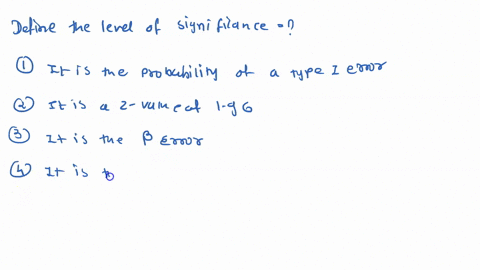 Define the level of significance = ?
① It is the probability of a type I error
② It is a z-value of 1.96
③ It is the β error
④ It is t